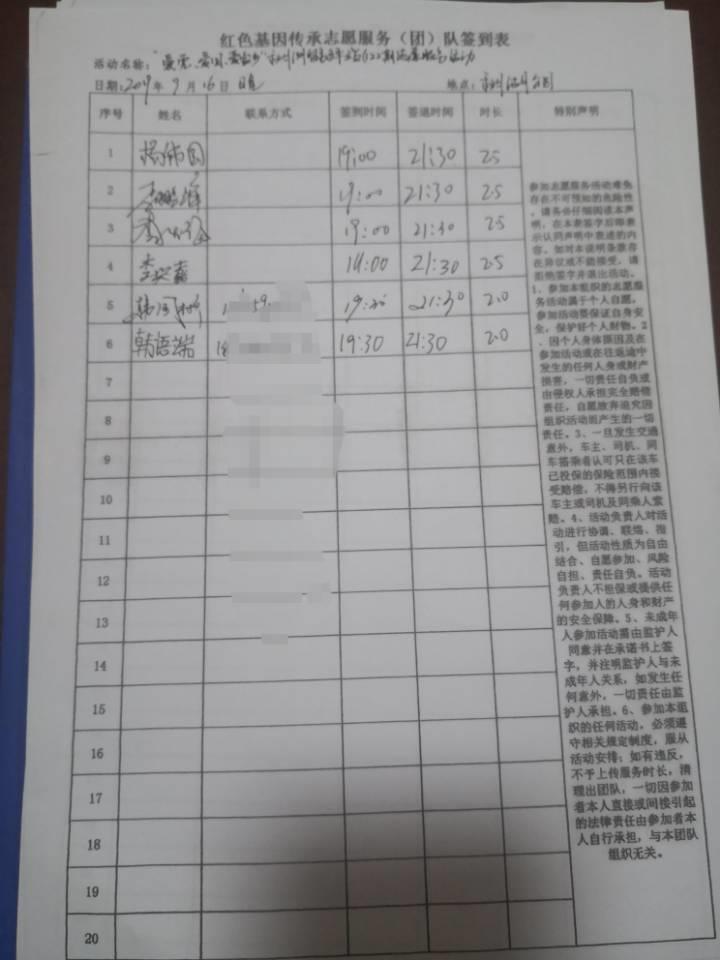 红色基因传承志愿服务（团）队签到表
活动名称：
日期：2019年9月16日
地点：
序号 姓名 联系方式 签到时间 签退时间 时长 特别声明
1 19:00 21:30 2.5
2 19:00 21:30 2.5
3 19:00 21:30 2.5
4 21:30 2.5
5 19:30 21:30 2.0
6 韩语端 19:30 21:30 2.0
7
8
9
10
11
12
13
14
15
16
17
18
19
20
参加志愿服务活动难免
存在不可预知的危险性
，请务必仔细阅读本声
明，在本表签字后即表
示认同声明中表述的内
容。如对本说明条款存
在异议或不能接受，请
拒绝签字并退出活动。
1、参加本组织的志愿服
务活动属于个人自愿，
参加活动要保证自身安
全，保护好个人财物。2
、因个人身体原因及在
参加活动或在往返途中
发生的任何人身或财产
损害，一切责任自负或
由侵权人承担完全赔偿
责任，自愿放弃追究因
组织活动而产生的一切
责任。3、一旦发生交通
意外，车主、司机、同
车搭乘者认可只在该车
已投保的保险范围内接
受赔偿，不得另行向该
车主或司机及同乘人索
赔。4、活动负责人对活
动进行协调、联络、指
引，但活动性质为自由
结合、自愿参加、风险
自担、责任自负。活动
负责人不担保或提供任
何参加人的人身和财产
的安全保障。5、未成年
人参加活动需由监护人
同意并在承诺书上签
字，并注明监护人与未
成年人关系，如发生任
何意外，一切责任由监
护人承担。6、参加本组
织的任何活动，必须遵
守相关规定制度，服从
活动安排；如有违反，
不予上传服务时长，清
理出团队，一切因参加
者本人直接或间接引起
的法律责任由参加者本
人自行承担，与本团队
组织无关。